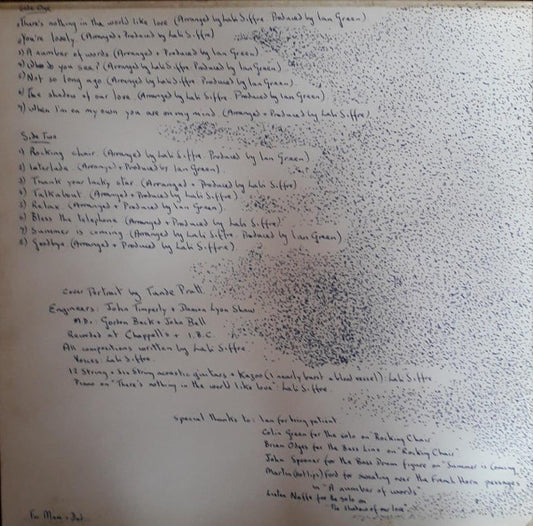 Side One
1) There's nothing in the world like love (Arranged by Labi Siffre Produced by Ian Green)
2) You're lovely (Arranged + Produced by Labi Siffre)
3) A number of words (Arranged + Produced by Ian Green)
4) Who do you see? (Arranged by Labi Siffre Produced by Ian Green)
5) Not so long ago (Arranged by Labi Siffre Produced by Ian Green)
6) The shadow of our love (Arranged by Labi Siffre Produced by Ian Green)
7) When I'm on my own you are on my mind (Arranged + Produced by Labi Siffre)
Side Two
1) Rocking chair (Arranged by Labi Siffre. Produced by Ian Green)
2) Interlude (Arranged + Produced by Ian Green)
3) Thank your lucky star (Arranged + Produced by Labi Siffre)
4) Talkabout (Arranged + Produced by Labi Siffre)
5) Relax (Arranged + Produced by Ian Green)
6) Bless the telephone (Arranged + Produced by Labi Siffre)
7) Summer is coming (Arranged by Labi Siffre Produced by Ian Green)
8) Goodbye (Arranged + Produced by Labi Siffre)
Cover Portrait by Tunde Pratt
Engineers: John Timperly + Damon Lyon Shaw
M.D. Gordon Beck + John Bell
Recorded at Chappells + I.B.C.
All compositions written by Labi Siffre
Voices Labi Siffre
12 String + Six String acoustic guitars + Kazoo (I nearly burst a blood vessel): Labi Siffre
Piano on "There's nothing in the world like love" Labi Siffre
Special thanks to: Ian for being patient
Colin Green for the solo on "Rocking Chair"
Brian Odges for the Bass Line on "Rocking Chair"
John Spooner for the Bass Drum figure on "Summer is Coming"
Martin Ford for sweating over the French Horn passages
in "A number of words"
for the solo on
"The Shadow of our love"
For Mum + Dad